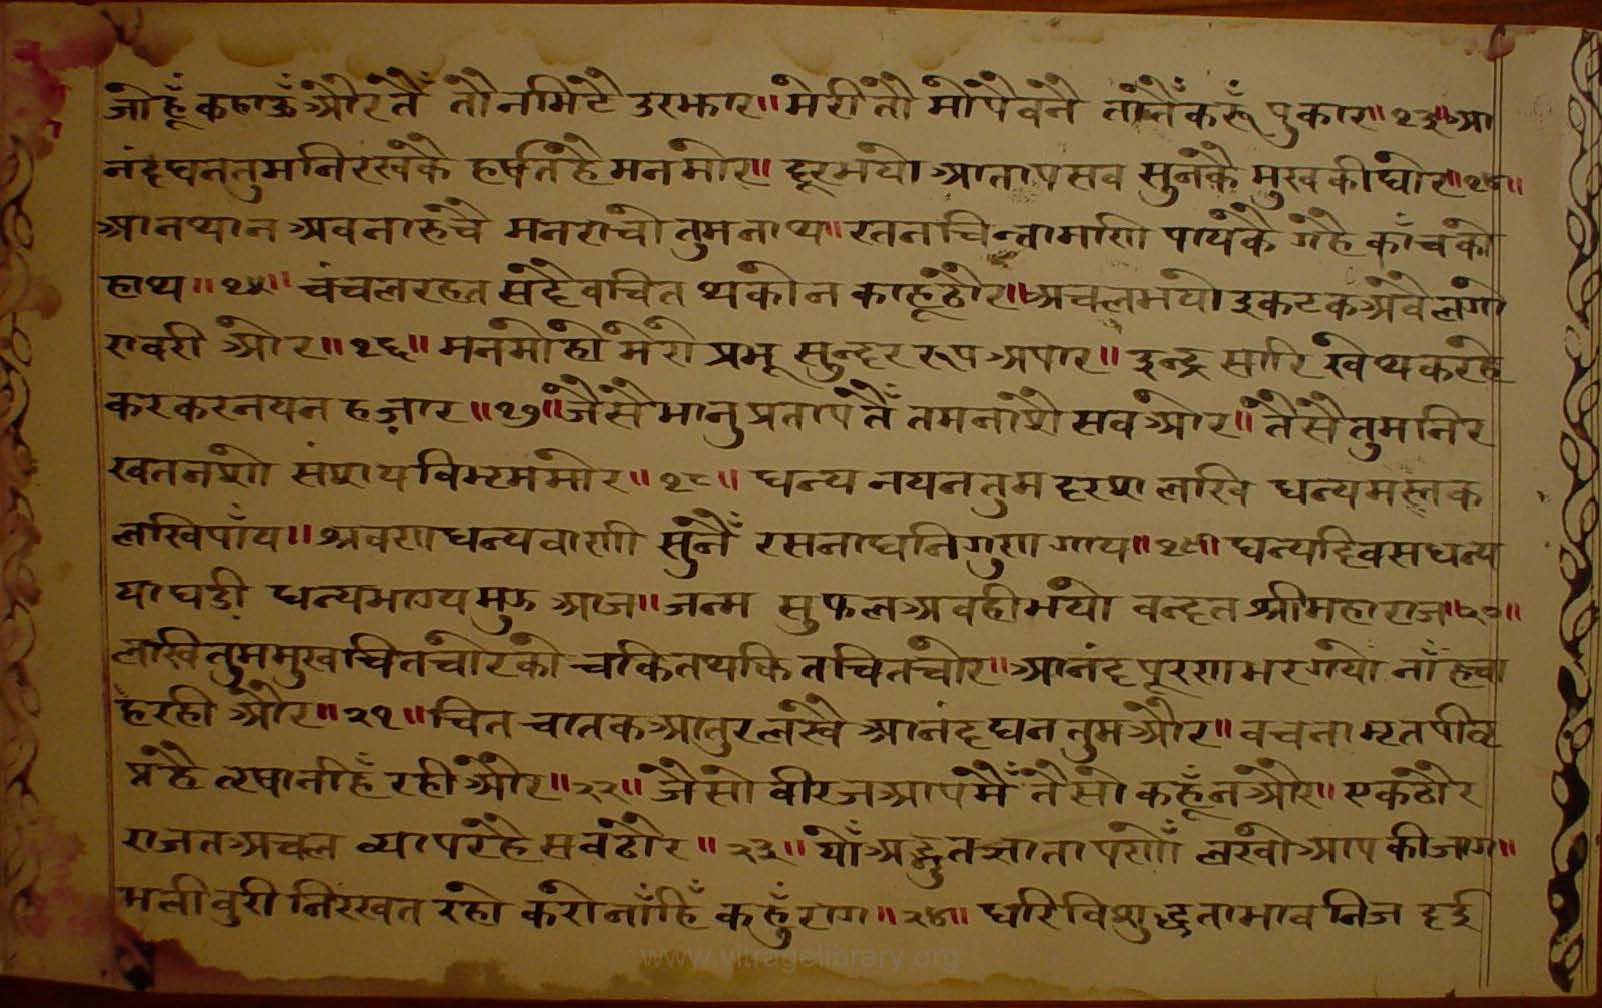 जो हूँ कहाऊँ और तैं तौ न मिटै उरझार॥ मेरी तौ मो पै वनै तातैं करूँ पुकार॥१३॥ आ
नंदघन तुम निरखकै हर्षत है मन मोर॥ दूर भयो आताप सव सुनकै मुख की घोर॥१४॥
आन थान अव ना रुचै मन राचो तुम नाथ॥ रतन चिन्तामणि पायकै गहै काँच को
हाथ॥१५॥ चंचल रहत सदैव चित थको न काहू ठोर॥ अचल भयो इकटक अवै लगो
रावरी ओर॥१६॥ मन मोहो मेरो प्रभू सुन्दर रूप अपार॥ इन्द्र सारिखे थक रहे
कर कर नयन हज़ार॥१७॥ जैसै भानु प्रताप तैं तम नाशै सव ओर॥ तैसै तुम निर
खत नशो संशय विभ्रम मोर॥१८॥ धन्य नयन तुम दरश लखि धन्य मस्तक
लखि पाँय॥ श्रवण धन्य वाणी सुनैं रसना धनि गुण गाय॥१९॥ धन्य दिवस धन्य
या घडी धन्य भाग्य मुझ आज॥ जन्म सुफल अव ही भयो वन्दत श्री महाराज॥२०॥
लखि तुम मुख चितचोर को चकित थकित चित चोर॥ आनंद पूरण भर गयो नाँहि चा
ह रही और॥२१॥ चित चातक आतुर लखै आनंदघन तुम और॥ वचनामृत पी तृ
प्त है तृषा नहिं रही और॥२२॥ जैसो वीरज आप मैं तैसो कहूँ न और॥ एक ठोर
राजत अचल व्याप रहै सव ठौर॥२३॥ यों अद्भुत ज्ञातापणों लखो आप की जाग॥
भली वुरी निरखत रहो करो नाँहिं कहुँ राग॥२४॥ धरि विशुद्धता भाव निज दई
www.vitragelibrary.org